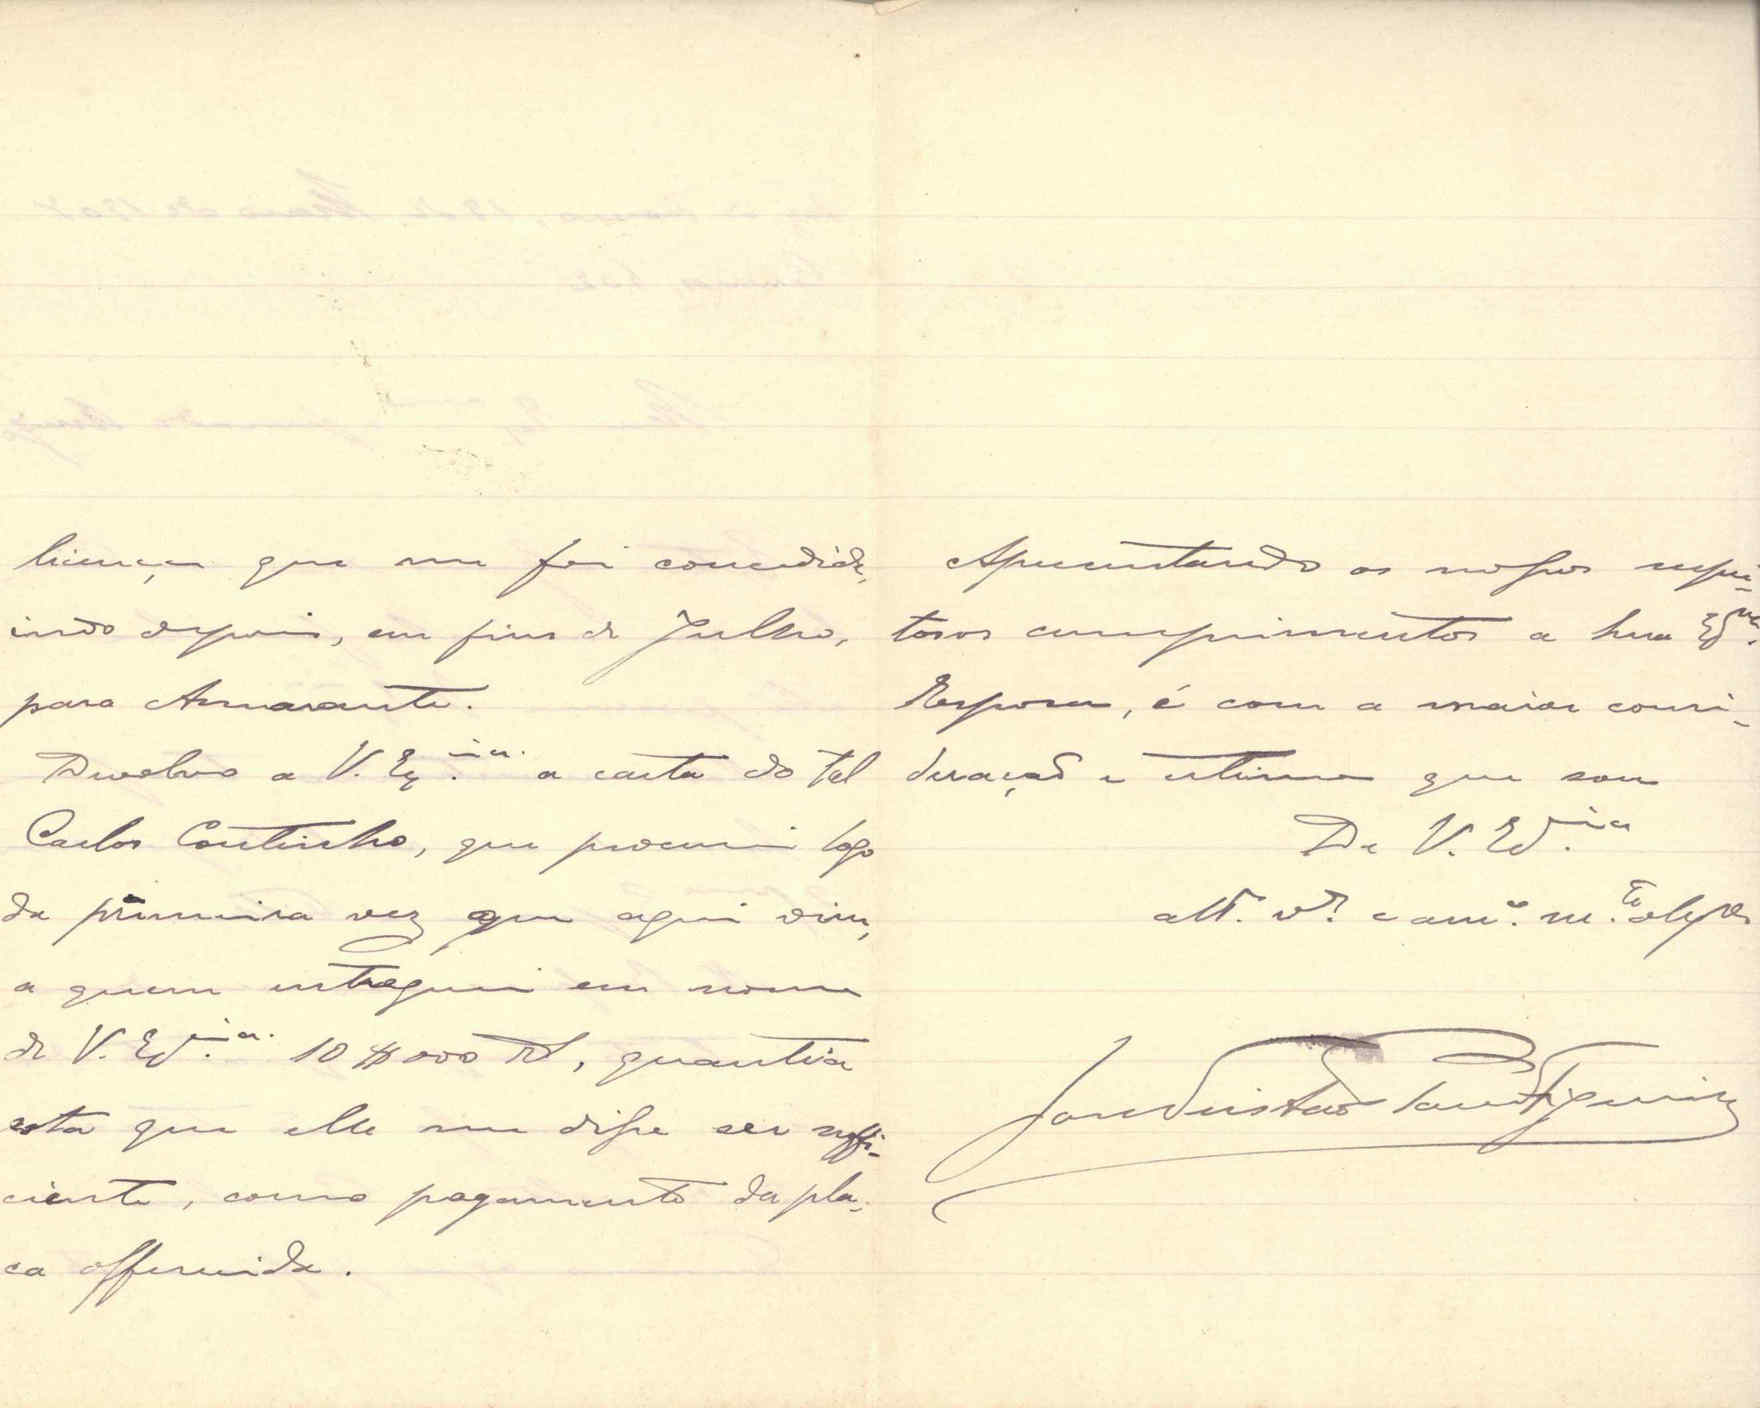 licença que me foi concedida,
indo depois, em fins de Julho,
para Amarante.
Devolvo a V. Ex.ia a carta do tal
Carlos Coutinho, que procurei logo
da primeira vez que aqui vim,
a quem entreguei em nome
de V. Ex.ia 10$000 rs, quantia
esta que elle me disse ser suffi-
ciente, como pagamento da pla-
ca offerecida.
Apresentando os nossos respei-
tosos cumprimentos a sua Ex.ma
Esposa, é com a maior consi-
deração e estima que sou
De V. Ex.ia
att.º v.or e am.º m.to obg.do